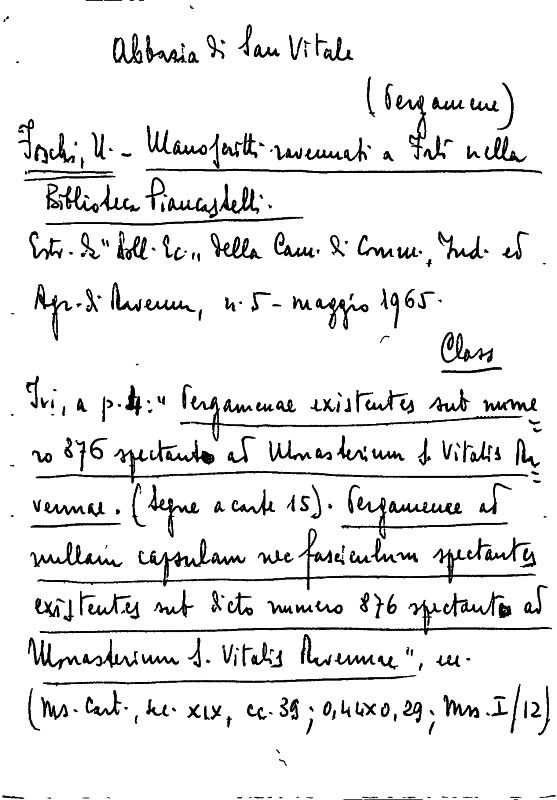 Abbazia di San Vitale
(Pergamene)
Foschi, U. - Manoscritti ravennati a Forlì nella
Biblioteca Piancastelli.
Estr. da "Boll. Ec." della Cam. di Comm., Ind. ed
Agr. di Ravenna, n. 5 - maggio 1965.
Class
Ivi, a p. 4: "Pergamenae existentes sub nume=
ro 876 spectant ad Monasterium S. Vitalis Ra=
vennae. (Segue a carte 15). Pergamenae ad
nullam capsulam nec fasciculum spectantes
existentes sub dicto numero 876 spectant ad
Monasterium S. Vitalis Ravennae", ecc.
(Ms. Cart., sec. XIX, cc. 39; 0,44x0,29; Mss. I/12)